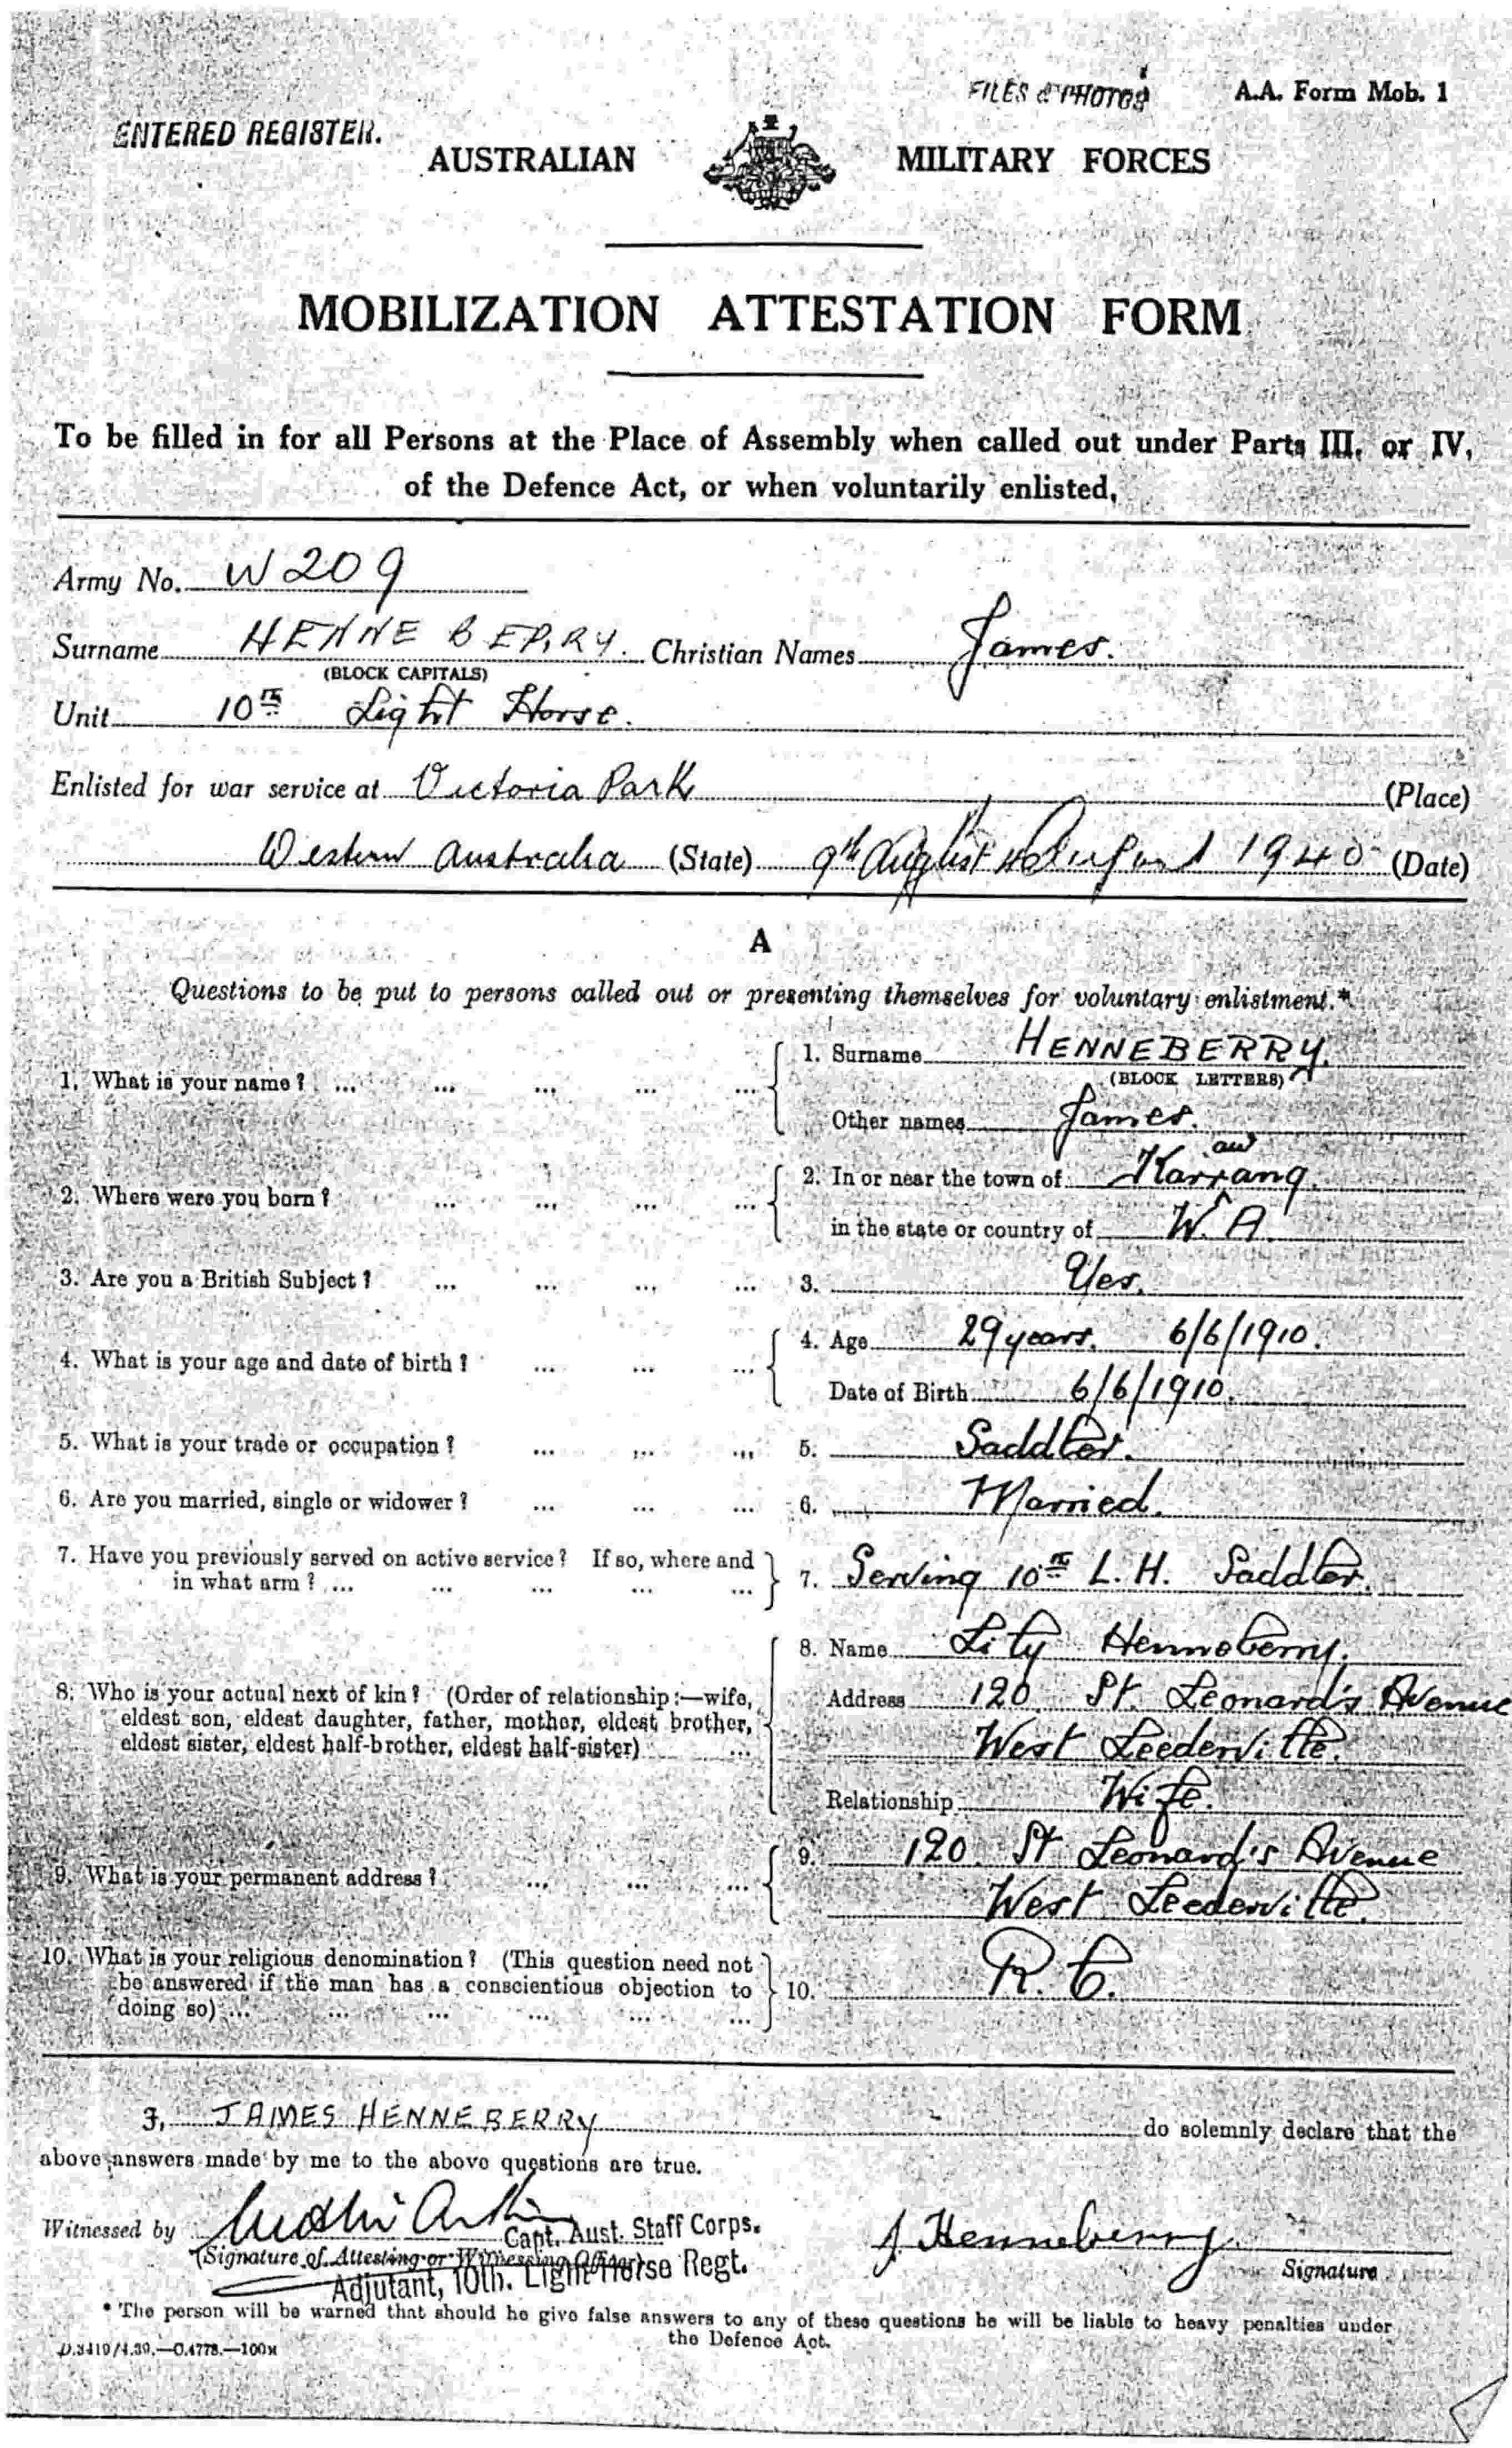 FILES & PHOTOS
A.A. Form Mob. 1
ENTERED REGISTER.
AUSTRALIAN MILITARY FORCES
MOBILIZATION ATTESTATION FORM
To be filled in for all Persons at the Place of Assembly when called out under Parts III. or IV.
of the Defence Act, or when voluntarily enlisted.
Army No. W209
Surname HENNEBERRY. Christian Names James.
(BLOCK CAPITALS)
Unit 10th Light Horse.
Enlisted for war service at Victoria Park (Place)
Western Australia (State) 9th August 1940 (Date)
A
Questions to be put to persons called out or presenting themselves for voluntary enlistment.*
1. What is your name? ... ... ... ... ... 1. Surname HENNEBERRY.
(BLOCK LETTERS)
Other names James.
2. Where were you born? ... ... ... ... 2. In or near the town of
in the state or country of W.A.
3. Are you a British Subject? ... ... ... ... 3. Yes.
4. What is your age and date of birth? ... ... ... 4. Age 29 years. 6/6/1910.
Date of Birth 6/6/1910.
5. What is your trade or occupation? ... ... ... 5. Saddler.
6. Are you married, single or widower? ... ... ... 6. Married.
7. Have you previously served on active service? If so, where and
in what arm? ... ... ... ... ... 7. Serving 10th L.H. Saddler.
8. Name Lily Henneberry.
8. Who is your actual next of kin? (Order of relationship:—wife,
eldest son, eldest daughter, father, mother, eldest brother,
eldest sister, eldest half-brother, eldest half-sister) ...
Address 120 St. Leonard's Avenue
West Leederville.
Relationship Wife.
9. What is your permanent address? ... ... ... 9. 120 St Leonard's Avenue
West Leederville.
10. What is your religious denomination? (This question need not
be answered if the man has a conscientious objection to
doing so) ... ... ... ... ... ... 10. R.C.
I, JAMES HENNEBERRY do solemnly declare that the
above answers made by me to the above questions are true.
Witnessed by
Capt. Aust. Staff Corps.
(Signature of Attesting or Witnessing Officer)
Adjutant, 10th. Light Horse Regt.
J Henneberry
Signature
* The person will be warned that should he give false answers to any of these questions he will be liable to heavy penalties under
the Defence Act.
D.3419/4.39.—C.4778.—100M